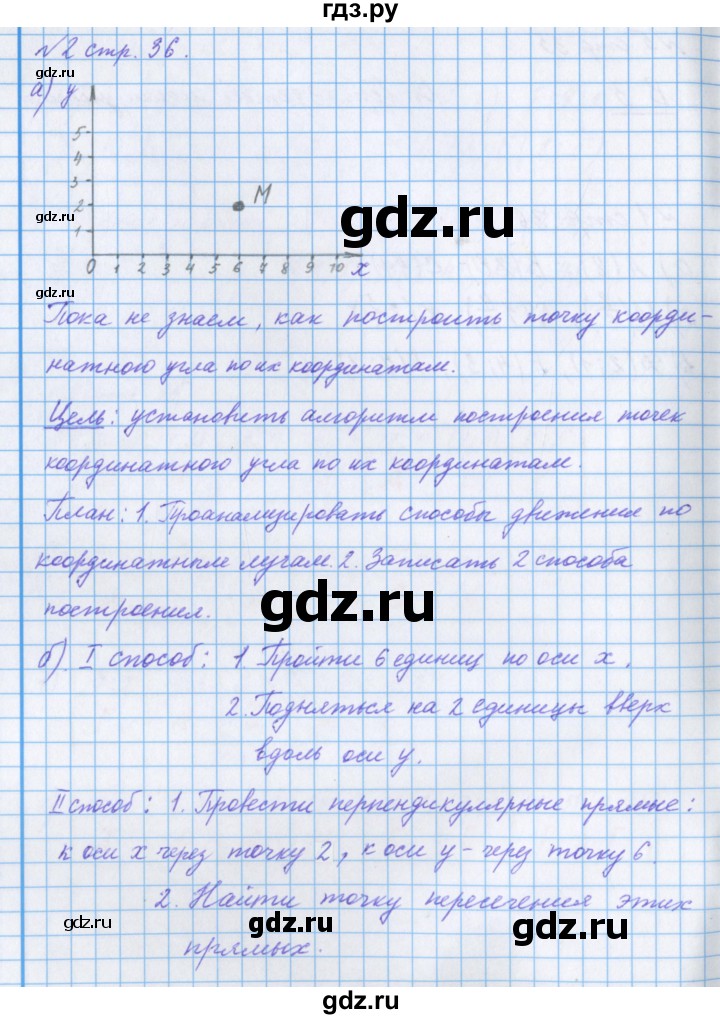 гдз.ру
№2 стр. 36.
gdz.ru
а) у
5
4
3
М
2
gdz.ru
gdz.ru
gdz.ru
1
0 1 2 3 4 5 6 7 8 9 10 х
Пока не знаем, как построить точку коорди-
натного угла по их координатам.
Цель: установить алгоритм построения точек
координатного угла по их координатам.
План: 1. Проанализировать способы движения по
координатным лучам. 2. Записать 2 способа
gdz.ru
построения.
gdz.ru
gdz.ru
б) I способ: 1. Пройти 6 единиц по оси х.
2. Подняться на 2 единицы вверх
вдоль оси у.
II способ: 1. Провести перпендикулярные прямые:
к оси х через точку 2, к оси у - через точку 6.
2. Найти точку пересечения этих
gdz.ru
gdz.ru
gdz.ru
прямых.
gdz.ru